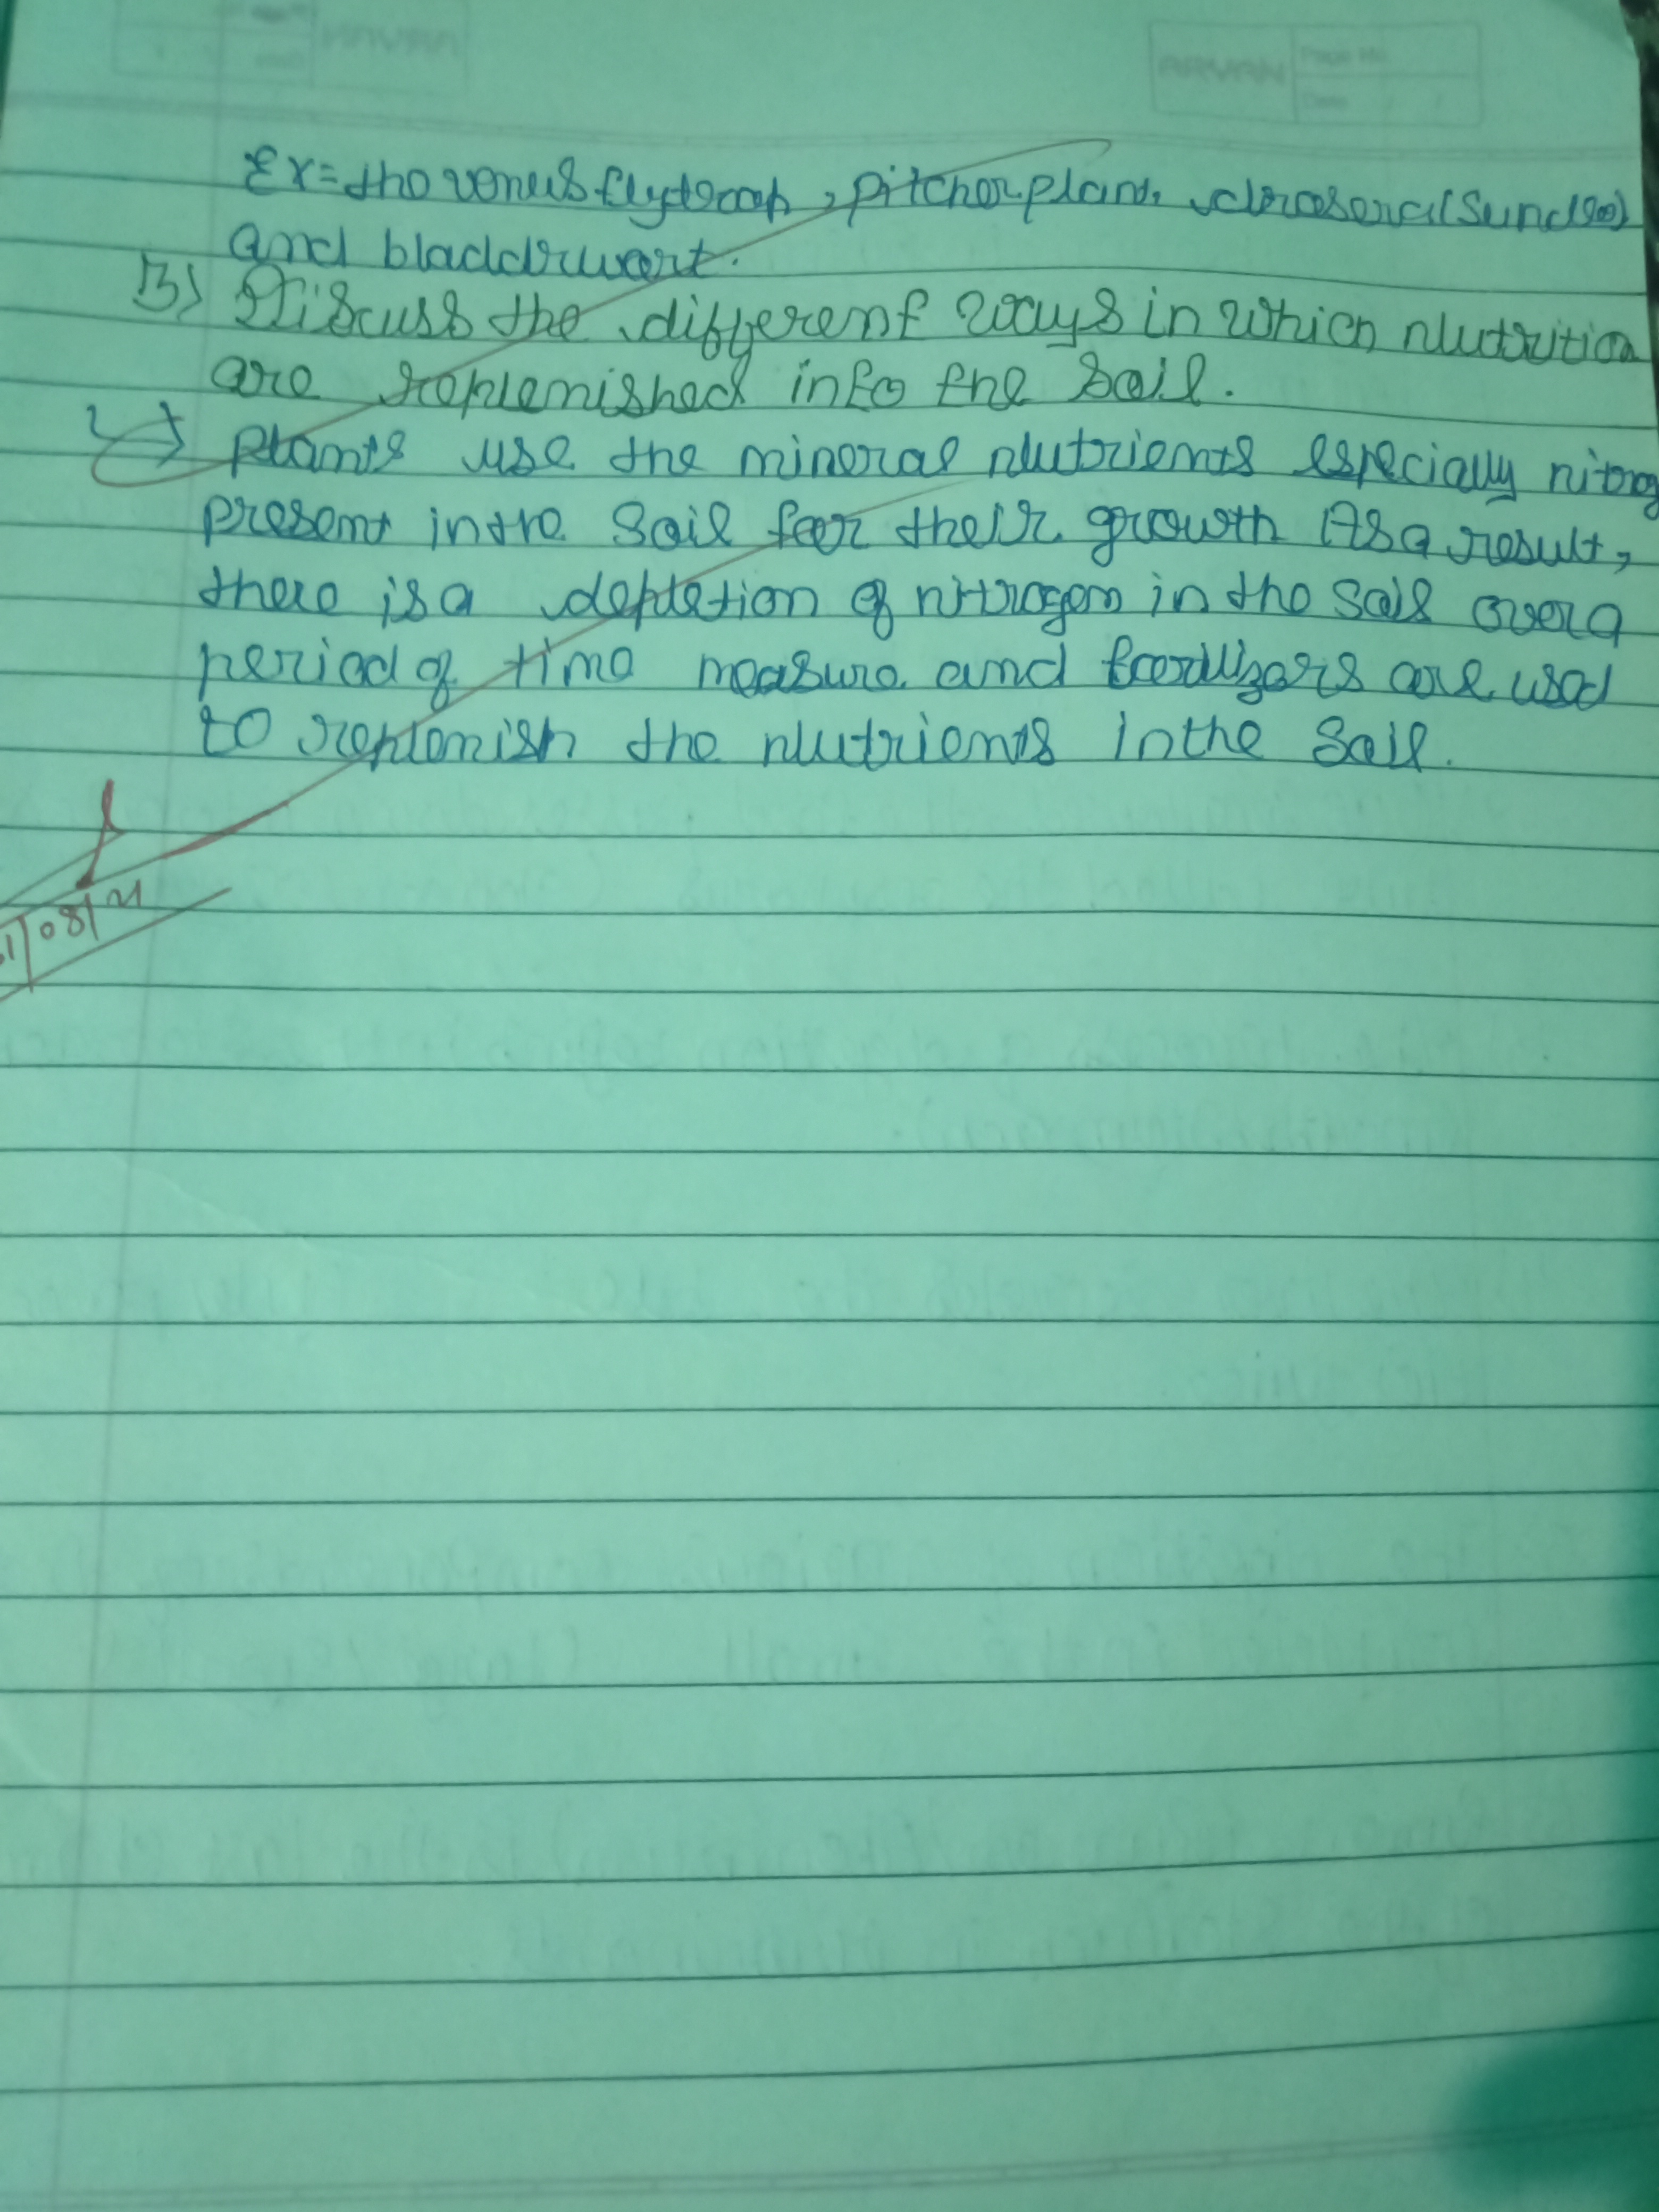 Ex= the venus flytrap, pitcher plant, drosera (Sundew)
and bladdrwort.
B) Discuss the different ways in which nutrition
are replenished into the Soil.
→ plants use the mineral nutrients especially nitrog
present in the Soil for their growth As a result,
there is a depletion of nitrogen in the Soil over a
period of time measure and fertilizers are used
to replenish the nutrients in the Soil.
/08/21